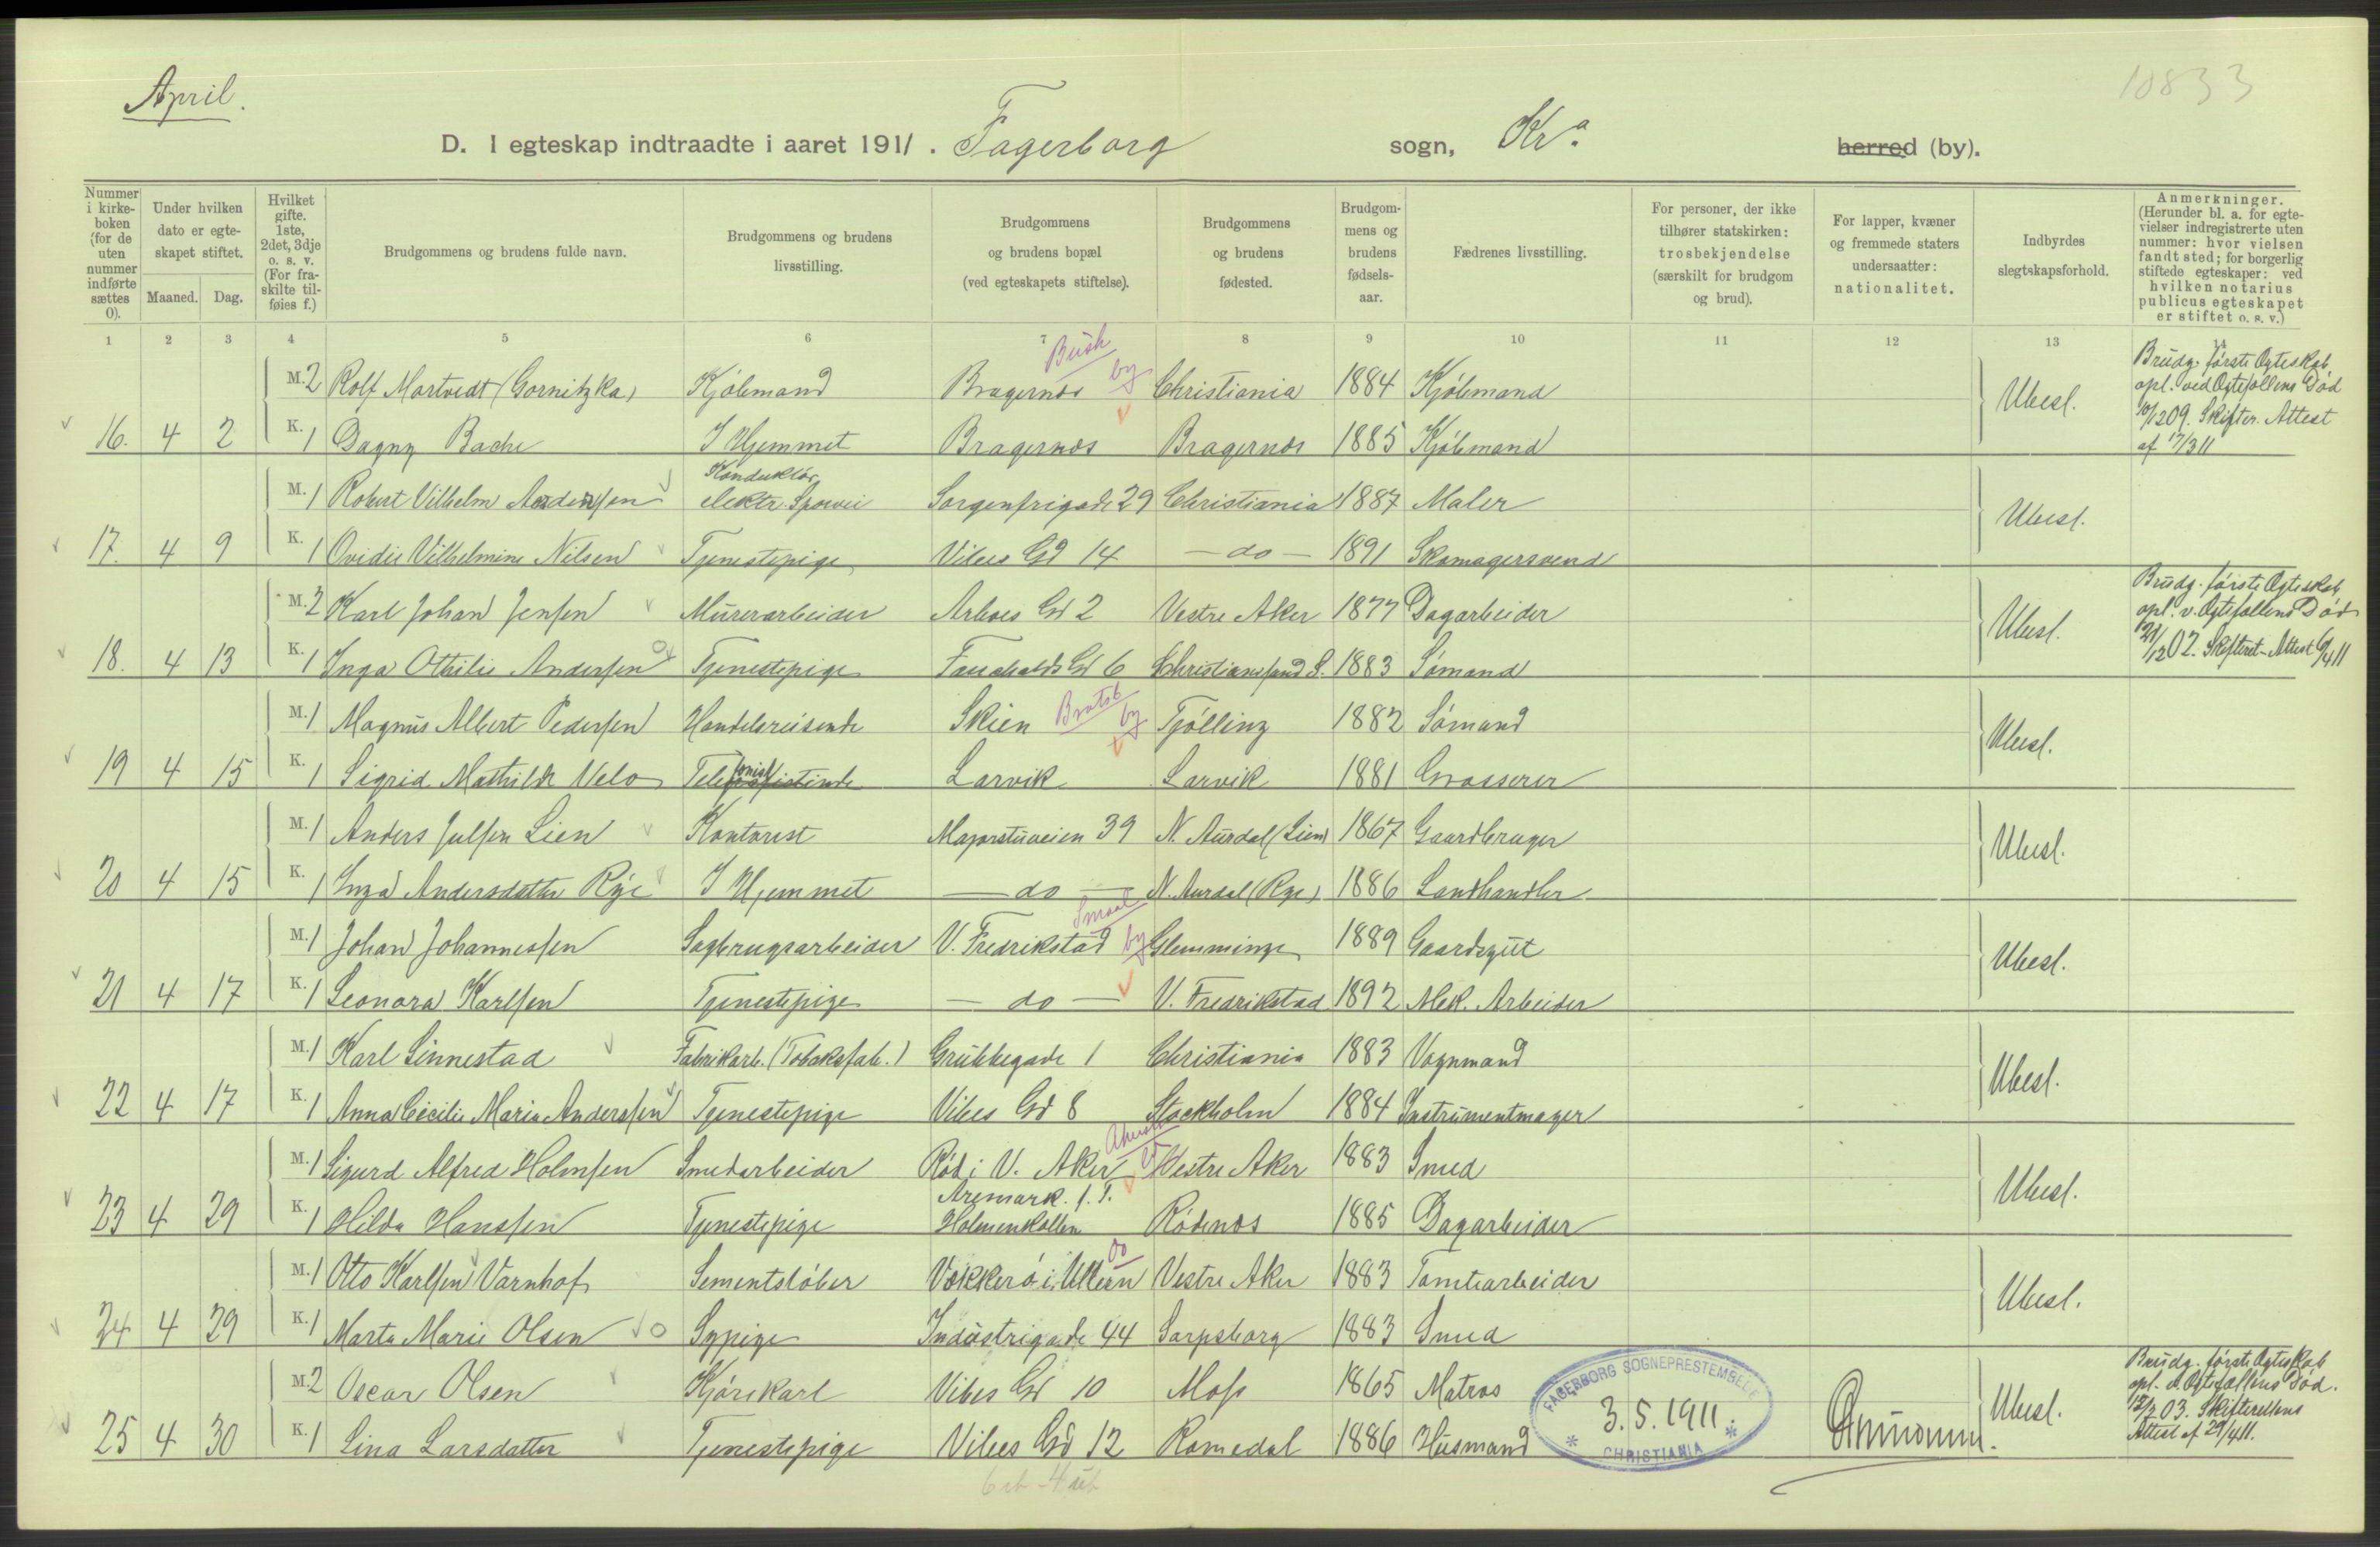 April.
10833
D. I egteskap indtraadte i aaret 1911. Fagerborg sogn, Kr.a herred (by).
Nummer i kirkeboken (for de uten nummer indførte sættes 0).
Under hvilken dato er egteskapet stiftet.
Maaned. Dag.
Hvilket gifte. 1ste, 2det, 3dje o. s. v. (For fraskilte tilføies f.)
Brudgommens og brudens fulde navn.
Brudgommens og brudens livsstilling.
Brudgommens og brudens bopæl (ved egteskapets stiftelse).
Brudgommens og brudens fødested.
Brudgommens og brudens fødselsaar.
Fædrenes livsstilling.
For personer, der ikke tilhører statskirken: trosbekjendelse (særskilt for brudgom og brud).
For lapper, kvæner og fremmede staters undersaatter: nationalitet.
Indbyrdes slegtskapsforhold.
Anmerkninger. (Herunder bl. a. for egtevielser indregistrerte uten nummer: hvor vielsen fandt sted; for borgerlig stiftede egteskaper: ved hvilken notarius publicus egteskapet er stiftet o. s. v.)
1 2 3 4 5 6 7 8 9 10 11 12 13 14
M. 2 Rolf Martvedt (Gornitzka) Kjøbmand Bragernes Busk by Christiania 1884 Kjøbmand
16. 4 2 K. 1 Dagny Bache I Hjemmet Bragernæs Bragernæs 1885 Kjøbmand Ubesl.
Brudg. første Ægteskab opl. ved Ægtefællens Død 10/12 09. Skifter. Attest af 17/3 11
M. 1 Robert Vilhelm Andersen Konduktør elektr. Sporvei Sorgenfrigade 29 Christiania 1887 Maler
17. 4 9 K. 1 Ovidie Vilhelmine Nilsen Tjenestepige Vibes Gd 14 — do — 1891 Skomagersvend Ubesl.
M. 2 Karl Johan Jensen Murerarbeider Arboes Gd 2 Vestre Aker 1877 Dagarbeider
18. 4 13 K. 1 Inga Othilie Andersen Tjenestepige Fauchalds Gd 6 Christianssand S. 1883 Sømand Ubesl.
Brudg. første Ægteskab opl. v. Ægtefællens Død 21/12 02. Skifteret-Attest 6/4 11
M. 1 Magnus Albert Pedersen Handelsreisende Skien Bratsb by Tjølling 1882 Sømand
19 4 15 K. 1 Sigrid Mathilde Velo Telefonistinde Larvik Larvik 1881 Grosserer Ubesl.
M. 1 Anders Julsen Lien Kontorist Majorstuveien 39 N. Aurdal (Lien) 1867 Gaardbruger
20 4 15 K. 1 Inga Andersdatter Rye I Hjemmet — do — N. Aurdal (Rye) 1886 Landhandler Ubesl.
M. 1 Johan Johannessen Sagbrugsarbeider V. Fredrikstad Smaal by Glemminge 1889 Gaardsgut
21 4 17 K. 1 Leonora Karlsen Tjenestepige — do — V. Fredrikstad 1892 Mek. Arbeider Ubesl.
M. 1 Karl Linnestad Fabrikarb. (Tobaksfab.) Grubbegade 1 Christiania 1883 Vognmand
22 4 17 K. 1 Anna Cecilie Maria Anderssen Tjenestepige Vibes Gd 8 Stockholm 1884 Instrumentmager Ubesl.
M. 1 Sigurd Alfred Holmsen Smedarbeider Rød i V. Aker Akersh Vestre Aker 1883 Smed
23 4 29 K. 1 Hilda Hanssen Tjenestepige Aremark. f. T. Holmenkollen Rødenæs 1885 Dagarbeider Ubesl.
M. 1 Otto Karlsen Varnhof Sementstøber Vækkerø i Ullern do Vestre Aker 1883 Tomtearbeider
24 4 29 K. 1 Marta Marie Olsen Sypige Industrigade 44 Sarpsborg 1883 Smed Ubesl.
M. 2 Oscar Olsen Kjørekarl Vibes Gd 10 Moss 1865 Matros
25 4 30 K. 1 Lina Larsdatter Tjenestepige Vibes Gd 12 Romedal 1886 Husmand Ubesl.
Brudg. første Ægteskab opl. v. Ægtefællens Død. 12/2 03. Skifterettens Attest af 29/4 11.
FAGERBORG SOGNEPRESTEMBEDE
3.5.1911.
* CHRISTIANIA *